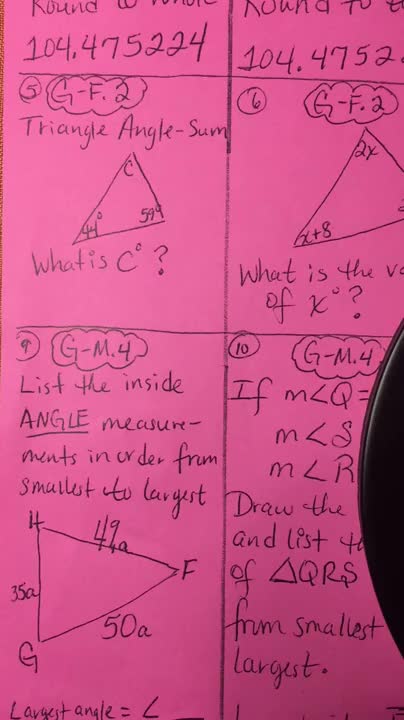 Round to Whole
104.475224
Round to
104.4752
5 G-F.2
Triangle Angle-Sum
C
44° 59°
What is C°?
6 G-F.2
2x
x+8
What is the
of x°?
9 G-M.4
List the inside
ANGLE measure-
ments in order from
smallest to largest
H
49a
F
35a
50a
G
Largest angle = ∠
10 G-M.4
If m∠Q =
m∠S
m∠R
Draw the
and list
of △QRS
from smallest
largest.